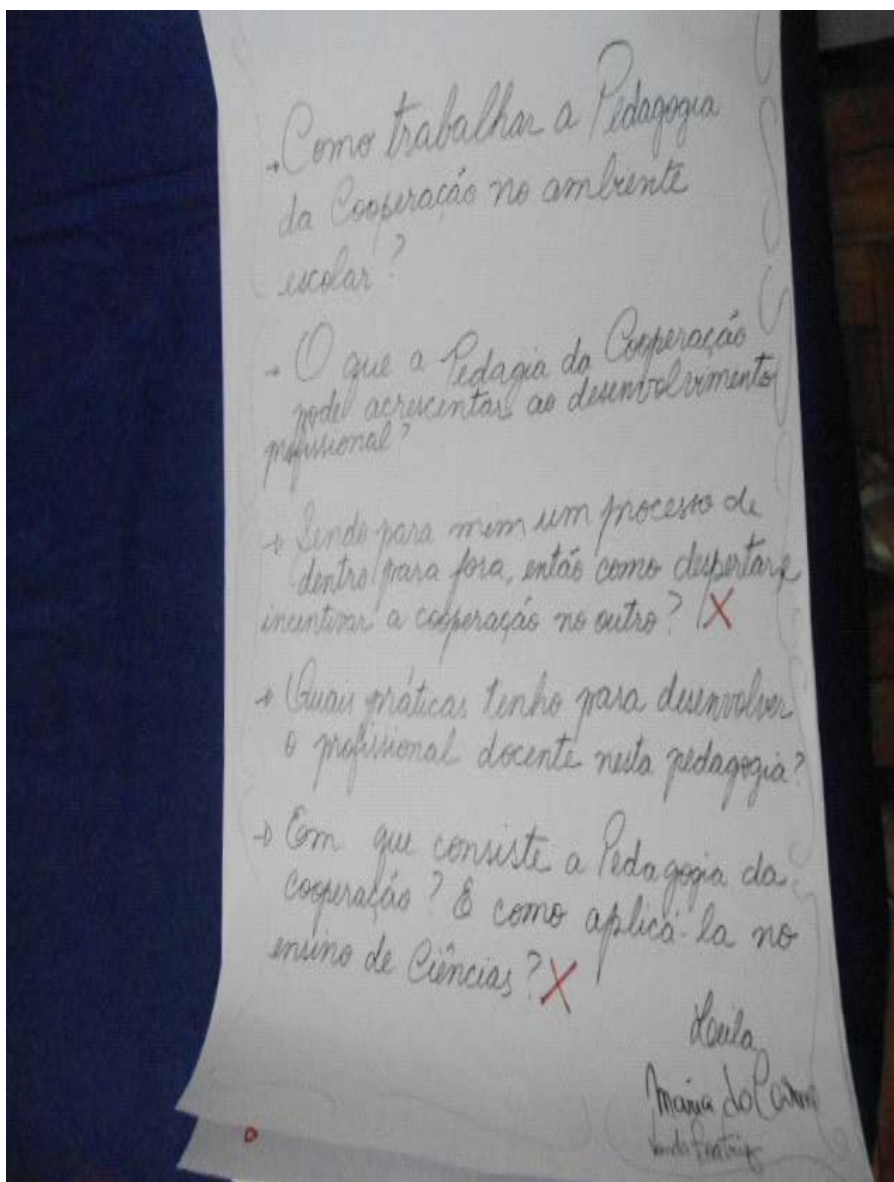 → Como trabalhar a Pedagogia
da Cooperação no ambiente
escolar?
→ O que a Pedagia da Cooperação
pode acrescentar ao desenvolvimento
profissional?
→ Sendo para mim um processo de
dentro para fora, então como despertar e
incentivar a cooperação no outro? X
→ Quais práticas tenho para desenvolver
o profissional docente nesta pedagogia?
→ Em que consiste a Pedagogia da
cooperação? E como aplicá-la no
ensino de Ciências? X
Leila
Maria do Carmo